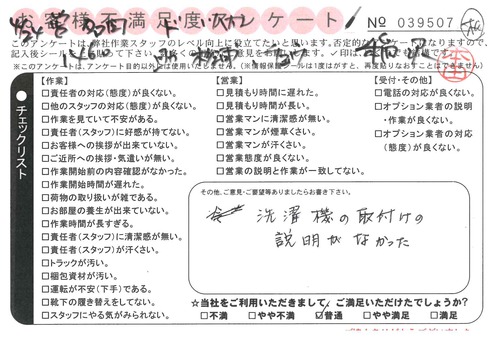 お客様不満足度アンケート
№ 039507
このアンケートは、弊社作業スタッフのレベル向上に役立てたいと思います。否定的な
記入後シール
※このアンケートは、アンケート目的以外には使用いたしません。(※情報保護シールは1度はがすと、再度貼りなおすことはできません)
チェックリスト
【作業】
□責任者の対応(態度)が良くない。
□他のスタッフの対応(態度)が良くない。
□作業を見ていて不安がある。
□責任者(スタッフ)に好感が持てない。
□お客様への挨拶が出来ていない。
□ご近所への挨拶・気遣いが無い。
□作業開始前の内容確認がなかった。
□作業開始時間が遅れた。
□荷物の取り扱いが雑である。
□お部屋の養生が出来ていない。
□作業時間が長すぎる。
□責任者(スタッフ)に清潔感が無い。
□責任者(スタッフ)が汗くさい。
□トラックが汚い。
□梱包資材が汚い。
□運転が不安(下手)である。
□靴下の履き替えをしてない。
□スタッフにやる気がみられない。
【営業】
□見積もり時間に遅れた。
□見積もり時間が長い。
□営業マンに清潔感が無い。
□営業マンが煙草くさい。
□営業マンが汗くさい。
□営業態度が良くない。
□営業の説明と作業が一致してない。
【受付・その他】
□電話の対応が良くない。
□オプション業者の説明
・作業が良くない。
□オプション業者の対応
(態度)が良くない。
その他、ご意見・ご要望等ありましたらお書き下さい。
洗濯機の取付けの
説明がなかった
☆当社をご利用いただきまして、ご満足いただけたでしょうか?
□不満 □やや不満 ☑普通 □やや満足 □満足